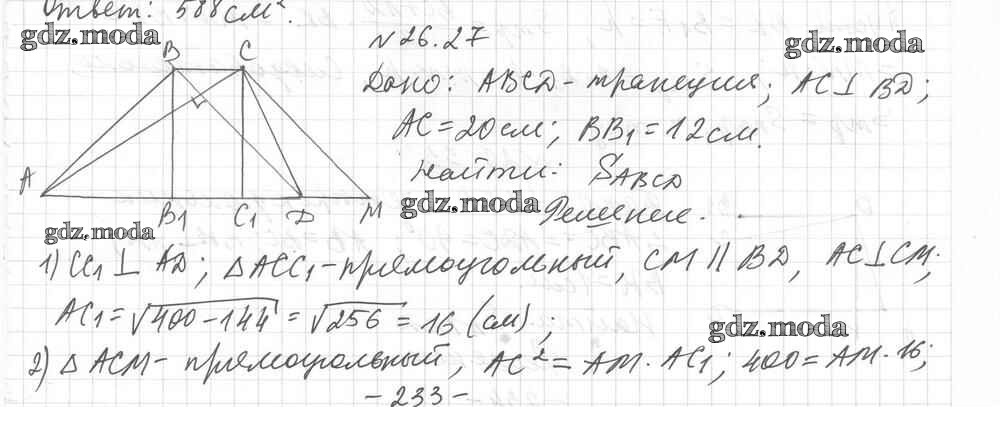 Ответ: 588 см².
gdz.moda
gdz.moda
№26.27
B C
Дано: ABCD - трапеция; AC ⊥ BD;
AC = 20 см; BB₁ = 12 см.
Найти: S_ABCD
A B₁ C₁ D M
gdz.moda
Решение.
gdz.moda
1) CC₁ ⊥ AD; △ACC₁ - прямоугольный, CM || BD, AC ⊥ CM;
AC₁ = √400-144 = √256 = 16 (см);
gdz.moda
2) △ACM - прямоугольный, AC² = AM · AC₁; 400 = AM · 16;
- 233 -